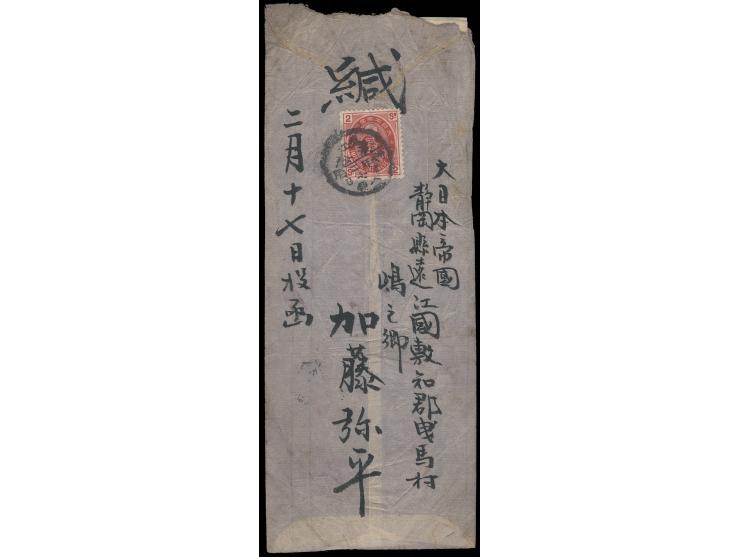 緘
大日本帝國
靜岡縣遠江國敷知郡曳馬村
嶋之郷
加藤弥平
二月十七日投函
2 Sn